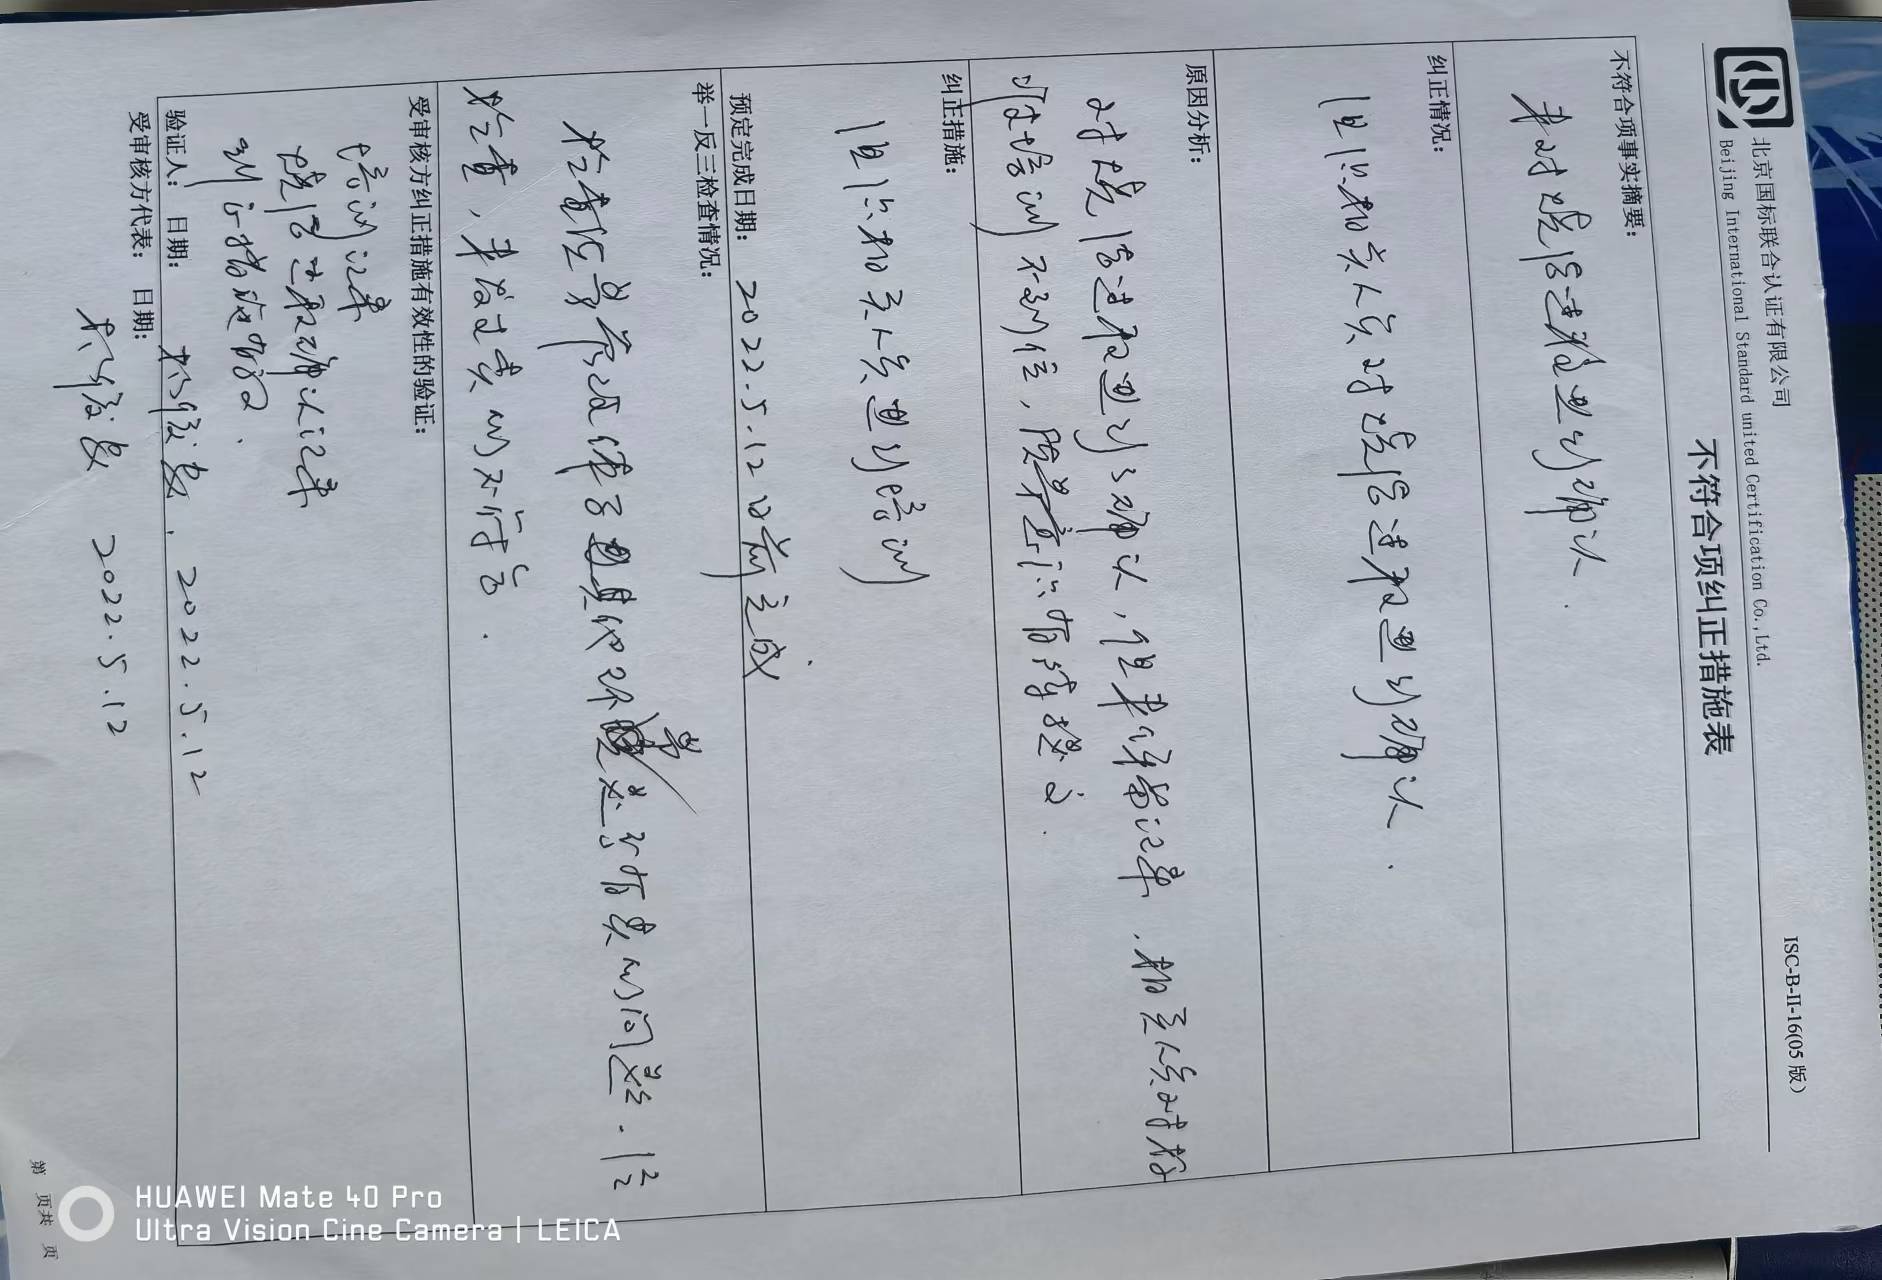 北京国标联合认证有限公司
Beijing International Standard united Certification Co.,Ltd.
ISC-B-II-16(05版)
不符合项纠正措施表
不符合项事实摘要:
未对烧结过程进行确认.
纠正情况:
组织相关人员对烧结过程进行确认.
原因分析:
对烧结过程进行了确认,但未保留记录.相关人员对标
准培训不到位,质量意识有待提高.
纠正措施:
组织相关人员进行培训
预定完成日期: 2022.5.12日前完成
举一反三检查情况:
检查质量管理体系其他环节是否有类似问题.经
检查,未发现类似不符合.
受审核方纠正措施有效性的验证:
培训记录
烧结过程确认记录
纠正措施有效.
验证人: 日期: 2022.5.12
受审核方代表: 日期: 2022.5.12
第 页共 页
HUAWEI Mate 40 Pro
Ultra Vision Cine Camera | LEICA